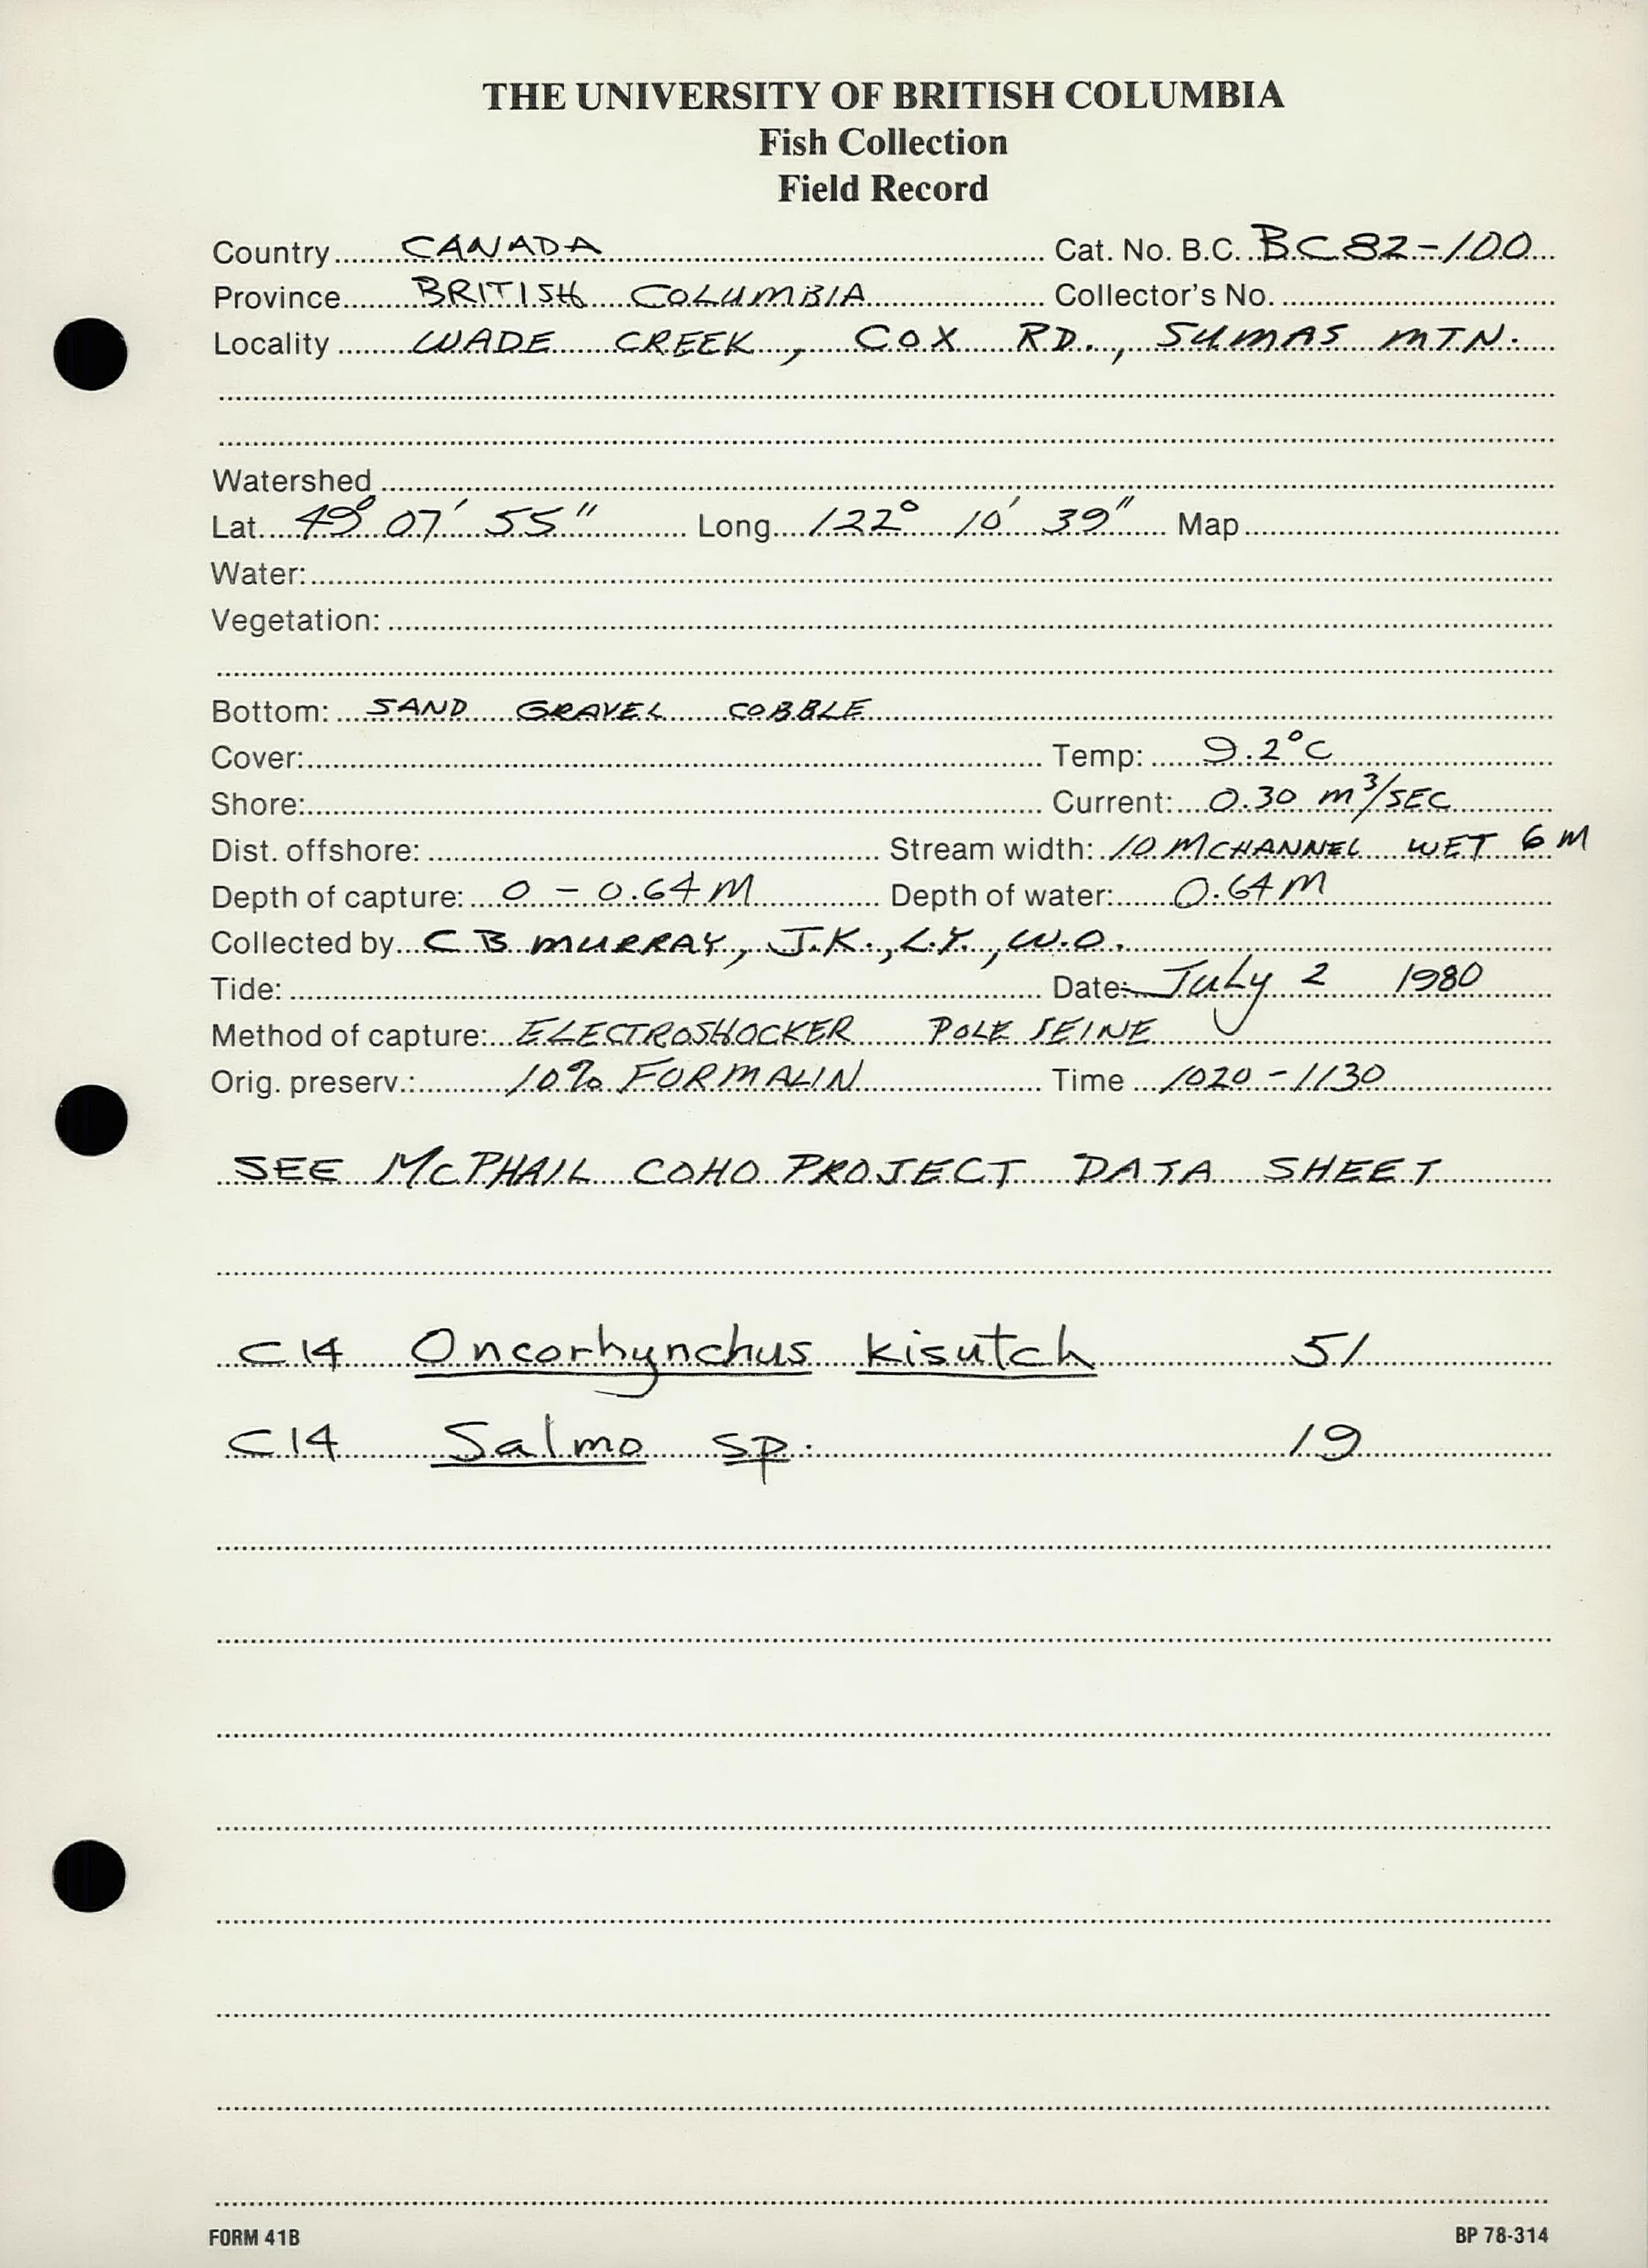 THE UNIVERSITY OF BRITISH COLUMBIA
Fish Collection
Field Record
Country CANADA Cat. No. B.C. BC82-100
Province BRITISH COLUMBIA Collector's No.
Locality WADE CREEK, COX RD., SUMAS MTN.
Watershed
Lat. 49° 07' 55" Long. 122° 10' 39" Map
Water:
Vegetation:
Bottom: SAND GRAVEL COBBLE
Cover: Temp: 9.2°C
Shore: Current: 0.30 m³/SEC
Dist. offshore: Stream width: 10 M CHANNEL WET 6 M
Depth of capture: 0 - 0.64 M Depth of water: 0.64 M
Collected by C B MURRAY, J.K., L.Y., W.O.
Tide: Date: July 2 1980
Method of capture: ELECTROSHOCKER POLE SEINE
Orig. preserv.: 10% FORMALIN Time 1020-1130
SEE McPHAIL COHO PROJECT DATA SHEET
C14 Oncorhynchus kisutch 51
C14 Salmo sp. 19
FORM 41B BP 78-314